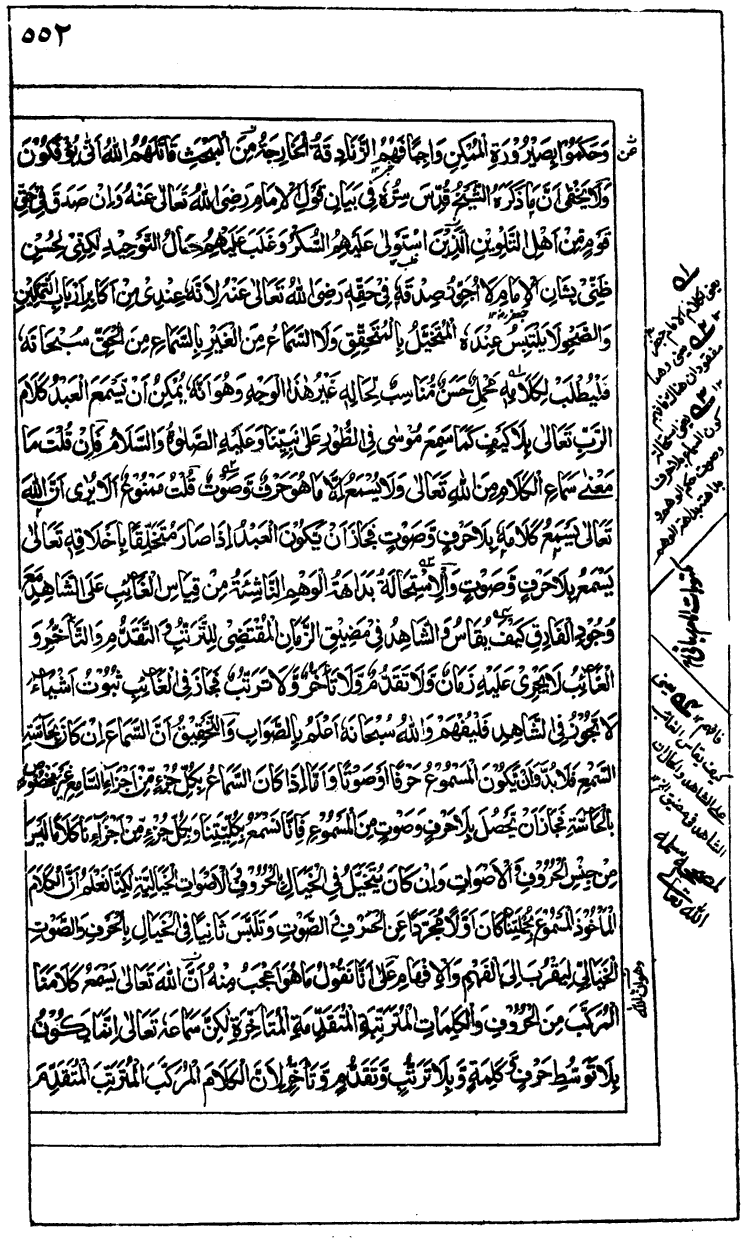 ٥٥٢
وَحَكَمُوْا بِصَيْرُوْرَةِ الْمُمْكِنِ وَاجِبًا فَهُمُ الزَّنَادِقَةُ الْخَارِجَةُ مِنَ الْمَبْحَثِ قَاتَلَهُمُ اللهُ اَنّٰى يُؤْفَكُوْنَ
وَلَا يَخْفٰى اَنَّ مَا ذَكَرَهُ الشَّيْخُ قُدِّسَ سِرُّهٗ فِيْ بَيَانِ قَوْلِ الْاِمَامِ رَضِىَ اللهُ تَعَالٰى عَنْهُ وَاِنْ صَدَقَ فِيْ حَقِّ
قَوْمٍ مِّنْ اَهْلِ التَّلْوِيْنِ الَّذِيْنَ اسْتَوْلٰى عَلَيْهِمُ السُّكْرُ وَغَلَبَ عَلَيْهِمْ حَالُ التَّوْحِيْدِ لٰكِنِّيْ بِحُسْنِ
ظَنِّيْ بِشَانِ الْاِمَامِ لَا اُجَوِّزُ صِدْقَهٗ فِيْ حَقِّهٖ رَضِىَ اللهُ تَعَالٰى عَنْهُ لِاَنَّهٗ عِنْدِيْ مِنْ اَكَابِرِ اَرْبَابِ التَّمْكِيْنِ
وَالصَّحْوِ لَا يَلْتَبِسُ عِنْدَهُ الْمُتَخَيَّلُ بِالْمُتَحَقِّقِ وَلَا السَّمَاعُ مِنَ الْغَيْرِ بِالسَّمَاعِ مِنَ الْحَقِّ سُبْحَانَهٗ
فَلْيُطْلَبْ لِكَلَامِهٖ مَحْمِلٌ حَسَنٌ مُّنَاسِبٌ لِحَالِهٖ غَيْرُ هٰذَا الْوَجْهِ وَهُوَ اَنَّهٗ يُمْكِنُ اَنْ يَّسْمَعَ الْعَبْدُ كَلَامَ
الرَّبِّ تَعَالٰى بِلَا كَيْفٍ كَمَا سَمِعَ مُوْسٰى فِي الطُّوْرِ عَلٰى نَبِيِّنَا وَعَلَيْهِ الصَّلٰوةُ وَالسَّلَامُ فَاِنْ قُلْتَ مَا
مَعْنٰى سَمَاعِ الْكَلَامِ مِنَ اللهِ تَعَالٰى وَلَا يُسْمَعُ اِلَّا مَا هُوَ حَرْفٌ وَّصَوْتٌ قُلْتُ مَمْنُوْعٌ اَلَا يُرٰى اَنَّ اللهَ
تَعَالٰى يَسْمَعُ كَلَامَهٗ بِلَا حَرْفٍ وَّصَوْتٍ فَجَازَ اَنْ يَّكُوْنَ الْعَبْدُ اِذَا صَارَ مُتَخَلِّقًا بِاَخْلَاقِهٖ تَعَالٰى
يَسْمَعُ بِلَا حَرْفٍ وَّصَوْتٍ وَالْاِسْتِحَالَةُ بَدَاهَةُ الْوَهْمِ النَّاشِئَةُ مِنْ قِيَاسِ الْغَائِبِ عَلَى الشَّاهِدِ مَعَ
وُجُوْدِ الْفَارِقِ كَيْفَ يُقَاسُ وَالشَّاهِدُ فِيْ مَضِيْقِ الزَّمَانِ الْمُقْتَضِيْ لِلتَّرَتُّبِ وَالتَّقَدُّمِ وَالتَّاَخُّرِ وَ
الْغَائِبُ لَا يَجْرِيْ عَلَيْهِ زَمَانٌ وَّلَا تَقَدُّمٌ وَّلَا تَاَخُّرٌ وَّلَا تَرَتُّبٌ فَجَازَ فِي الْغَائِبِ ثُبُوْتُ اَشْيَاءَ
لَا تَجُوْزُ فِي الشَّاهِدِ فَلْيُفْهَمْ وَاللهُ سُبْحَانَهٗ اَعْلَمُ بِالصَّوَابِ وَالتَّحْقِيْقُ اَنَّ السَّمَاعَ اِنْ كَانَ بِحَاسَّةِ
السَّمْعِ فَلَا بُدَّ وَاَنْ يَّكُوْنَ الْمَسْمُوْعُ حَرْفًا اَوْ صَوْتًا وَاَمَّا اِذَا كَانَ السَّمَاعُ بِكُلِّ جُزْءٍ مِّنْ اَجْزَاءِ السَّامِعِ غَيْرَ مَخْصُوْصٍ
بِالْحَاسَّةِ فَجَازَ اَنْ يَّحْصُلَ بِلَا حَرْفٍ وَّصَوْتٍ مِنَ الْمَسْمُوْعِ فَاِنَّا نَسْمَعُ بِكُلِّيَّتِنَا وَبِكُلِّ جُزْءٍ مِّنْ اَجْزَاءِنَا كَلَامًا لَيْسَ
مِنْ جِنْسِ الْحُرُوْفِ وَالْاَصْوَاتِ وَاِنْ كَانَ يُتَخَيَّلُ فِي الْخَيَالِ بِالْحُرُوْفِ وَالْاَصْوَاتِ الْخَيَالِيَّةِ لٰكِنَّا نَعْلَمُ اَنَّ الْكَلَامَ
الْمَاْخُوْذَ الْمَسْمُوْعَ بِكُلِّيَّتِنَا كَانَ اَوَّلًا مُجَرَّدًا عَنِ الْحَرْفِ وَالصَّوْتِ وَتَلَبَّسَ ثَانِيًا فِي الْخَيَالِ بِالْحَرْفِ وَالصَّوْتِ
الْخَيَالِيِّ لِيَقْرُبَ اِلَى الْفَهْمِ وَالْاِفْهَامِ عَلٰى اَنَّا نَقُوْلُ مَا هُوَ اَعْجَبُ مِنْهُ اَنَّ اللهَ تَعَالٰى يَسْمَعُ كَلَامَنَا
الْمُرَكَّبَ مِنَ الْحُرُوْفِ وَالْكَلِمَاتِ الْمُتَرَتِّبَةِ الْمُتَقَدِّمَةِ الْمُتَاَخِّرَةِ لٰكِنَّ سَمَاعَهٗ تَعَالٰى اِنَّمَا يَكُوْنُ
بِلَا تَوَسُّطِ حَرْفٍ وَّكَلِمَةٍ وَّبِلَا تَرَتُّبٍ وَّتَقَدُّمٍ وَّتَاَخُّرٍ لِاَنَّ الْكَلَامَ الْمُرَكَّبَ الْمُتَرَتِّبَ الْمُتَقَدِّمَ
يعنى كلام الامام
يعنى
كيف يقاس الغائب
على الشاهد والحال ان
الشاهد فى مضيق الخ
لمصححه سلمه
الله تعالى